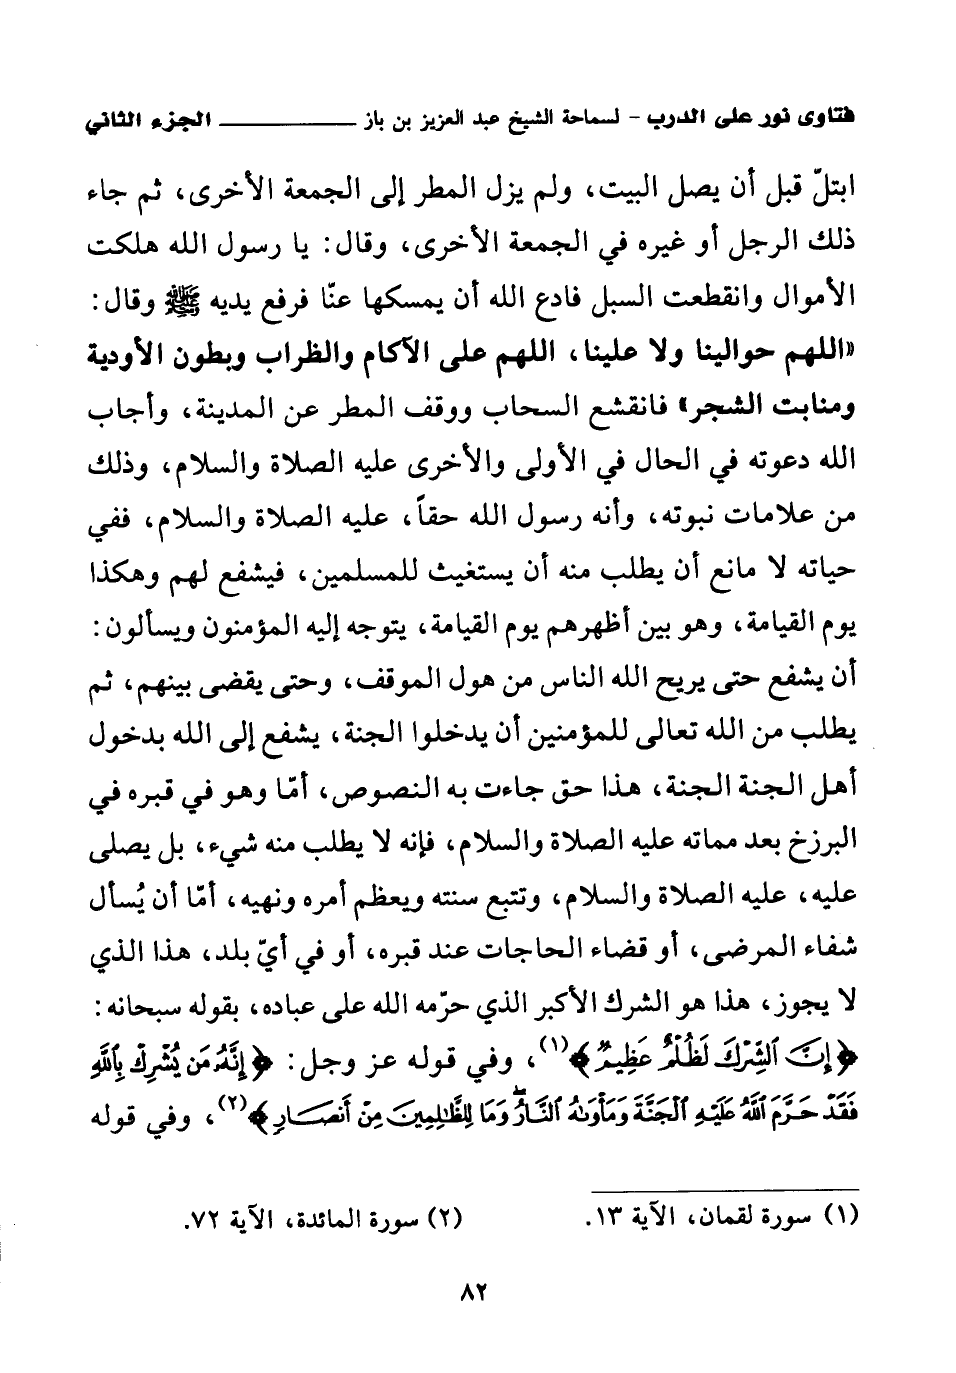 فتاوى نور على الدرب - لسماحة الشيخ عبد العزيز بن باز ـــــــــــــ الجزء الثاني
ابتلّ قبل أن يصل البيت، ولم يزل المطر إلى الجمعة الأخرى، ثم جاء
ذلك الرجل أو غيره في الجمعة الأخرى، وقال: يا رسول الله هلكت
الأموال وانقطعت السبل فادع الله أن يمسكها عنّا فرفع يديه ﷺ وقال:
«اللهم حوالينا ولا علينا، اللهم على الآكام والظراب وبطون الأودية
ومنابت الشجر» فانقشع السحاب ووقف المطر عن المدينة، وأجاب
الله دعوته في الحال في الأولى والأخرى عليه الصلاة والسلام، وذلك
من علامات نبوته، وأنه رسول الله حقاً، عليه الصلاة والسلام، ففي
حياته لا مانع أن يطلب منه أن يستغيث للمسلمين، فيشفع لهم وهكذا
يوم القيامة، وهو بين أظهرهم يوم القيامة، يتوجه إليه المؤمنون ويسألون:
أن يشفع حتى يريح الله الناس من هول الموقف، وحتى يقضى بينهم، ثم
يطلب من الله تعالى للمؤمنين أن يدخلوا الجنة، يشفع إلى الله بدخول
أهل الجنة الجنة، هذا حق جاءت به النصوص، أمّا وهو في قبره في
البرزخ بعد مماته عليه الصلاة والسلام، فإنه لا يطلب منه شيء، بل يصلى
عليه، عليه الصلاة والسلام، وتتبع سنته ويعظم أمره ونهيه، أمّا أن يُسأل
شفاء المرضى، أو قضاء الحاجات عند قبره، أو في أيّ بلد، هذا الذي
لا يجوز، هذا هو الشرك الأكبر الذي حرّمه الله على عباده، بقوله سبحانه:
﴿إِنَّ ٱلشِّرْكَ لَظُلْمٌ عَظِيمٌ﴾(١)، وفي قوله عز وجل: ﴿إِنَّهُۥ مَن يُشْرِكْ بِٱللَّهِ
فَقَدْ حَرَّمَ ٱللَّهُ عَلَيْهِ ٱلْجَنَّةَ وَمَأْوَىٰهُ ٱلنَّارُ ۖ وَمَا لِلظَّٰلِمِينَ مِنْ أَنصَارٍ﴾(٢)، وفي قوله
(١) سورة لقمان، الآية ١٣. (٢) سورة المائدة، الآية ٧٢.
٨٢